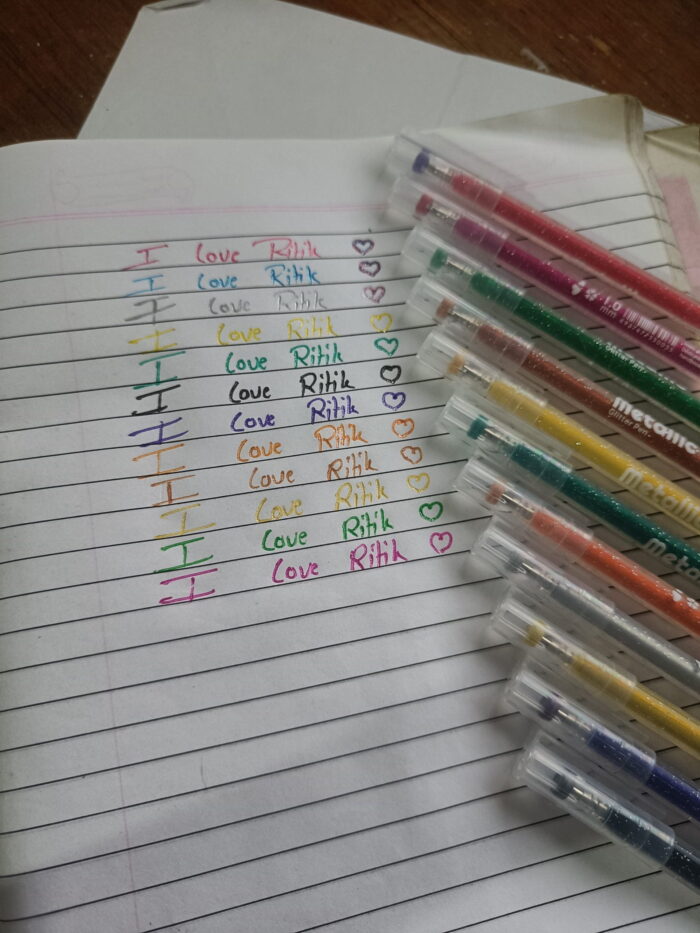 I Love Ritik ♡
I Love Ritik ♡
I Love Ritik ♡
I Love Ritik ♡
I Love Ritik ♡
I Love Ritik ♡
I Love Ritik ♡
I Love Ritik ♡
I Love Ritik ♡
I Love Ritik ♡
I Love Ritik ♡
I Love Ritik ♡
1.0
mm
Metallic
Glitter Pen
Metalli
Meta